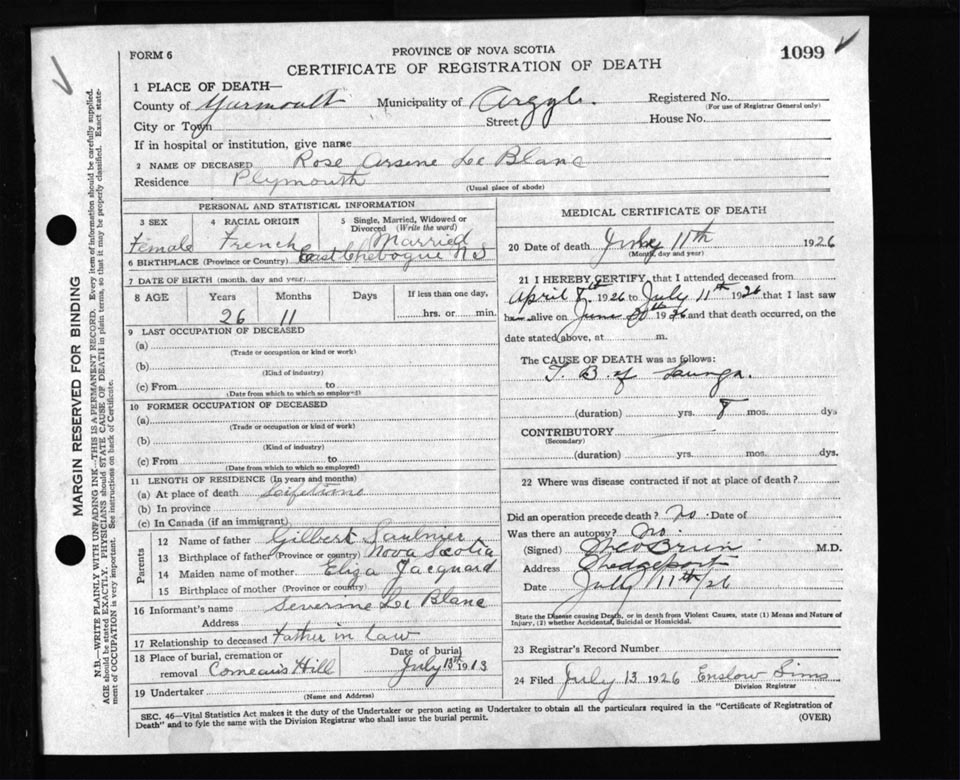 FORM 6
PROVINCE OF NOVA SCOTIA
1099
CERTIFICATE OF REGISTRATION OF DEATH
1 PLACE OF DEATH—
County of Yarmouth Municipality of Argyle. Registered No.
(For use of Registrar General only)
City or Town Street House No.
If in hospital or institution, give name
2 NAME OF DECEASED Rose Arsene Le Blanc
Residence Plymouth
(Usual place of abode)
PERSONAL AND STATISTICAL INFORMATION
3 SEX 4 RACIAL ORIGIN 5 Single, Married, Widowed or
Divorced (Write the word)
Female French Married
6 BIRTHPLACE (Province or Country) East Chebogue N S
7 DATE OF BIRTH (month, day and year)
8 AGE Years Months Days If less than one day,
26 11 hrs. or min.
9 LAST OCCUPATION OF DECEASED
(a)
(Trade or occupation or kind or work)
(b)
(Kind of industry)
(c) From to
(Date from which to which so employed)
10 FORMER OCCUPATION OF DECEASED
(a)
(Trade or occupation or kind of work)
(b)
(Kind of industry)
(c) From to
(Date from which to which so employed)
11 LENGTH OF RESIDENCE (In years and months)
(a) At place of death Lifetime
(b) In province
(c) In Canada (if an immigrant)
Parents
12 Name of father Gilbert Saulnier
13 Birthplace of father (Province or country) Nova Scotia
14 Maiden name of mother Eliza Jacquard
15 Birthplace of mother (Province or country)
16 Informant's name Severine Le Blanc
Address
17 Relationship to deceased Father in law
18 Place of burial, cremation or Date of burial
removal Comeau's Hill July 13th 1913
19 Undertaker
(Name and Address)
MEDICAL CERTIFICATE OF DEATH
20 Date of death July 11th 1926
(Month, day and year)
21 I HEREBY CERTIFY, that I attended deceased from
April 1926 to July 11th 1926 that I last saw
h alive on June 1926 and that death occurred, on the
date stated above, at m.
The CAUSE OF DEATH was as follows:
T. B. of Lungs.
(duration) yrs. 8 mos. dys
CONTRIBUTORY
(Secondary)
(duration) yrs. mos. dys.
22 Where was disease contracted if not at place of death?
Did an operation precede death? No Date of
Was there an autopsy? No
(Signed) M.D.
Address
Date July 11th/26
State the Disease causing Death, or in death from Violent Causes, state (1) Means and Nature of
Injury, (2) whether Accidental, Suicidal or Homicidal.
23 Registrar's Record Number
24 Filed July 13 1926 Enslow Sims
Division Registrar
SEC. 46—Vital Statistics Act makes it the duty of the Undertaker or person acting as Undertaker to obtain all the particulars required in the "Certificate of Registration of
Death" and to fyle the same with the Division Registrar who shall issue the burial permit.
(OVER)
MARGIN RESERVED FOR BINDING
N.B.—WRITE PLAINLY WITH UNFADING INK—THIS IS A PERMANENT RECORD. Every item of information should be carefully supplied.
AGE should be stated EXACTLY. PHYSICIANS should STATE CAUSE OF DEATH in plain terms, so that it may be properly classified. Exact state-
ment of OCCUPATION is very important. See instructions on back of Certificate.